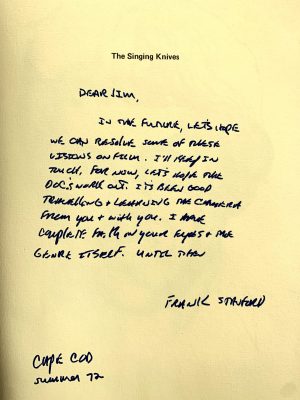 The Singing Knives
DEAR JIM,
IN THE FUTURE, LET'S HOPE
WE CAN RESOLVE SOME OF THESE
VISIONS ON FILM. I'LL KEEP IN
TOUCH. FOR NOW, LET'S HOPE THE
DOC'S WORK OUT. IT'S BEEN GOOD
TRAVELLING & LEARNING THE CAMERA
FROM YOU & WITH YOU. I HAVE
COMPLETE FAITH IN YOUR EYES & THE
GENRE ITSELF. UNTIL THEN
FRANK STANFORD
CAPE COD
SUMMER 72